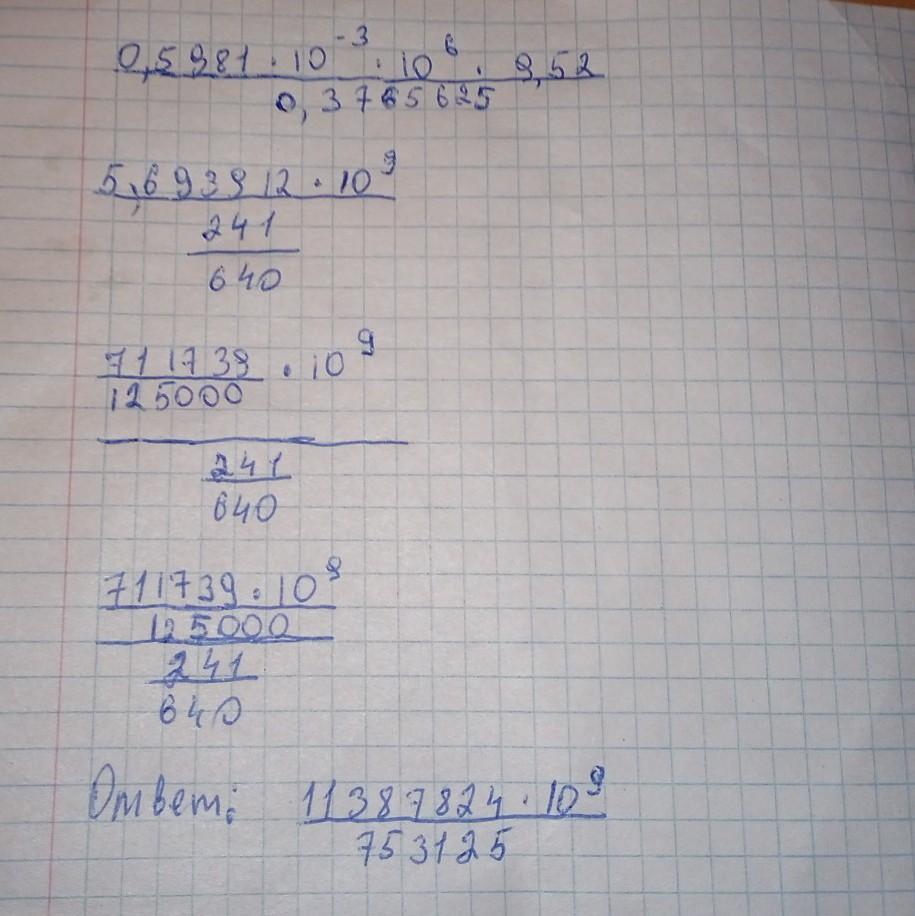 0,5981 · 10⁻³ · 10⁶ · 9,52
0,3765625
5,693912 · 10⁹
241
640
711739 · 10⁹
125000
241
640
711739 · 10⁹
125000
241
640
Ответ: 11387824 · 10⁹
753125